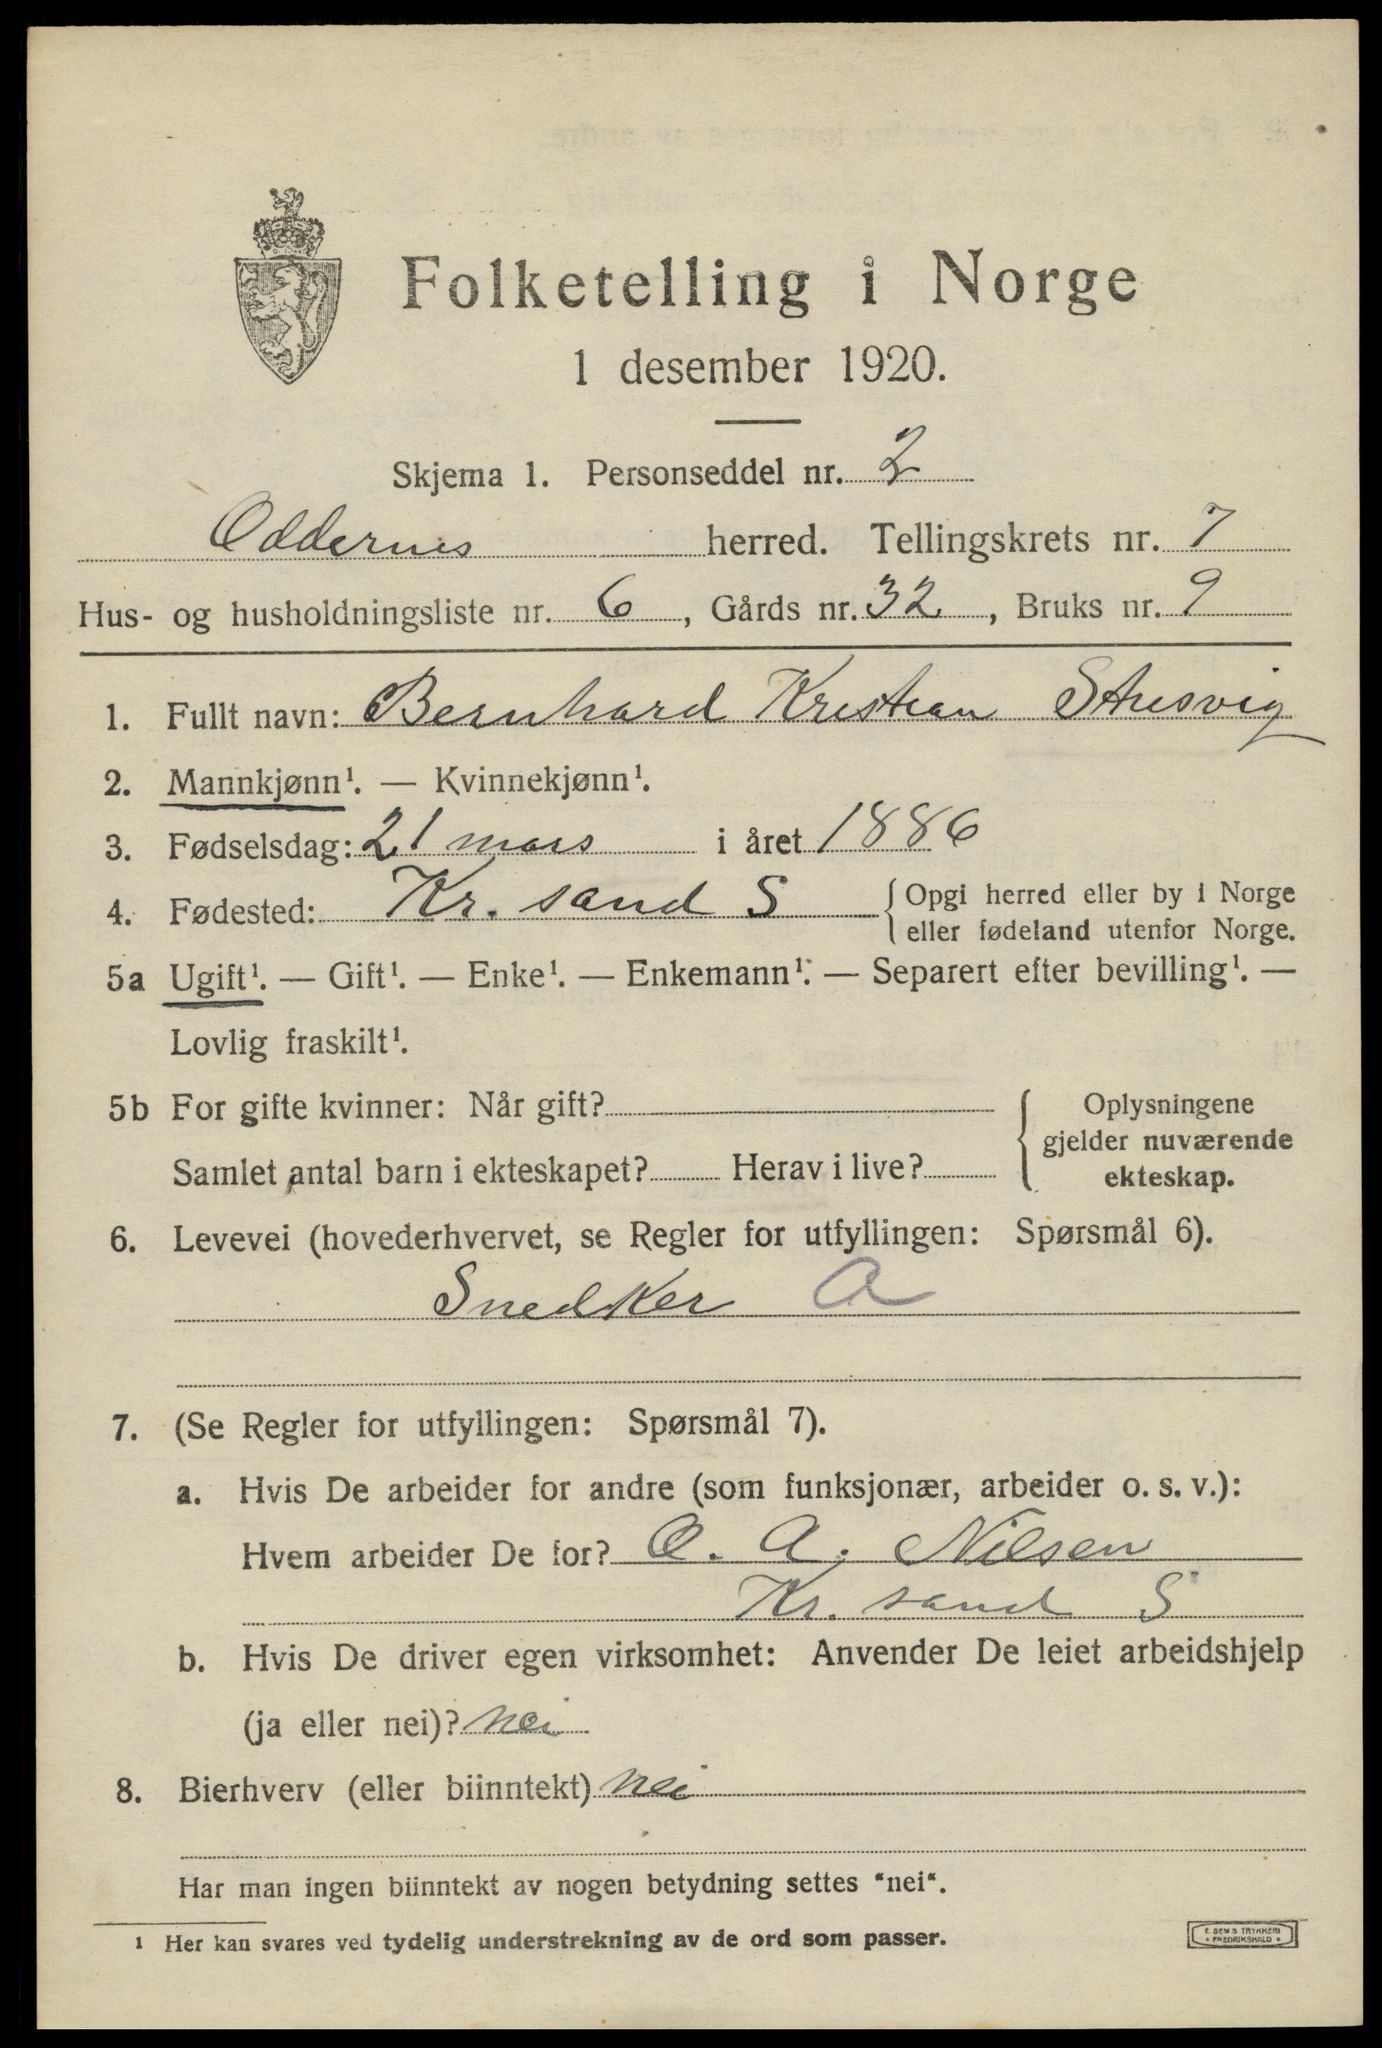 Folketelling i Norge
1 desember 1920.
Skjema 1. Personseddel nr. 2
Oddernes herred. Tellingskrets nr. 7
Hus- og husholdningsliste nr. 6, Gårds nr. 32, Bruks nr. 9
1. Fullt navn: Bernhard Kristian
2. Mannkjønn¹. — Kvinnekjønn¹.
3. Fødselsdag: 21 mars i året 1886
4. Fødested: Kr. sand S { Opgi herred eller by i Norge
eller fødeland utenfor Norge.
5a Ugift¹. — Gift¹. — Enke¹. — Enkemann¹. — Separert efter bevilling¹. —
Lovlig fraskilt¹.
5b For gifte kvinner: Når gift? { Oplysningene
gjelder nuværende
Samlet antal barn i ekteskapet? Herav i live? ekteskap.
6. Levevei (hovederhvervet, se Regler for utfyllingen: Spørsmål 6).
Snedker A
7. (Se Regler for utfyllingen: Spørsmål 7).
a. Hvis De arbeider for andre (som funksjonær, arbeider o. s. v.):
Hvem arbeider De for? O. A. Nilsen
Kr. sand S
b. Hvis De driver egen virksomhet: Anvender De leiet arbeidshjelp
(ja eller nei)? nei
8. Bierhverv (eller biinntekt) nei
Har man ingen biinntekt av nogen betydning settes "nei".
1 Her kan svares ved tydelig understrekning av de ord som passer.
E. SEM'S TRYKKERI
* FREDRIKSHALD *